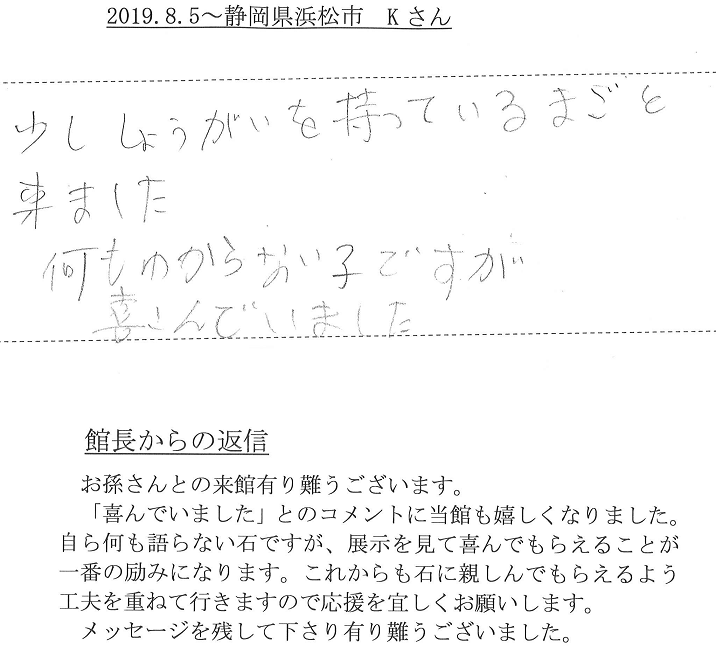 2019.8.5～静岡県浜松市　Kさん
少ししょうがいを持っているまごと
来ました
何もわからない子ですが
喜こんでいました
館長からの返信
お孫さんとの来館有り難うございます。
「喜んでいました」とのコメントに当館も嬉しくなりました。
自ら何も語らない石ですが、展示を見て喜んでもらえることが
一番の励みになります。これからも石に親しんでもらえるよう
工夫を重ねて行きますので応援を宜しくお願いします。
メッセージを残して下さり有り難うございました。